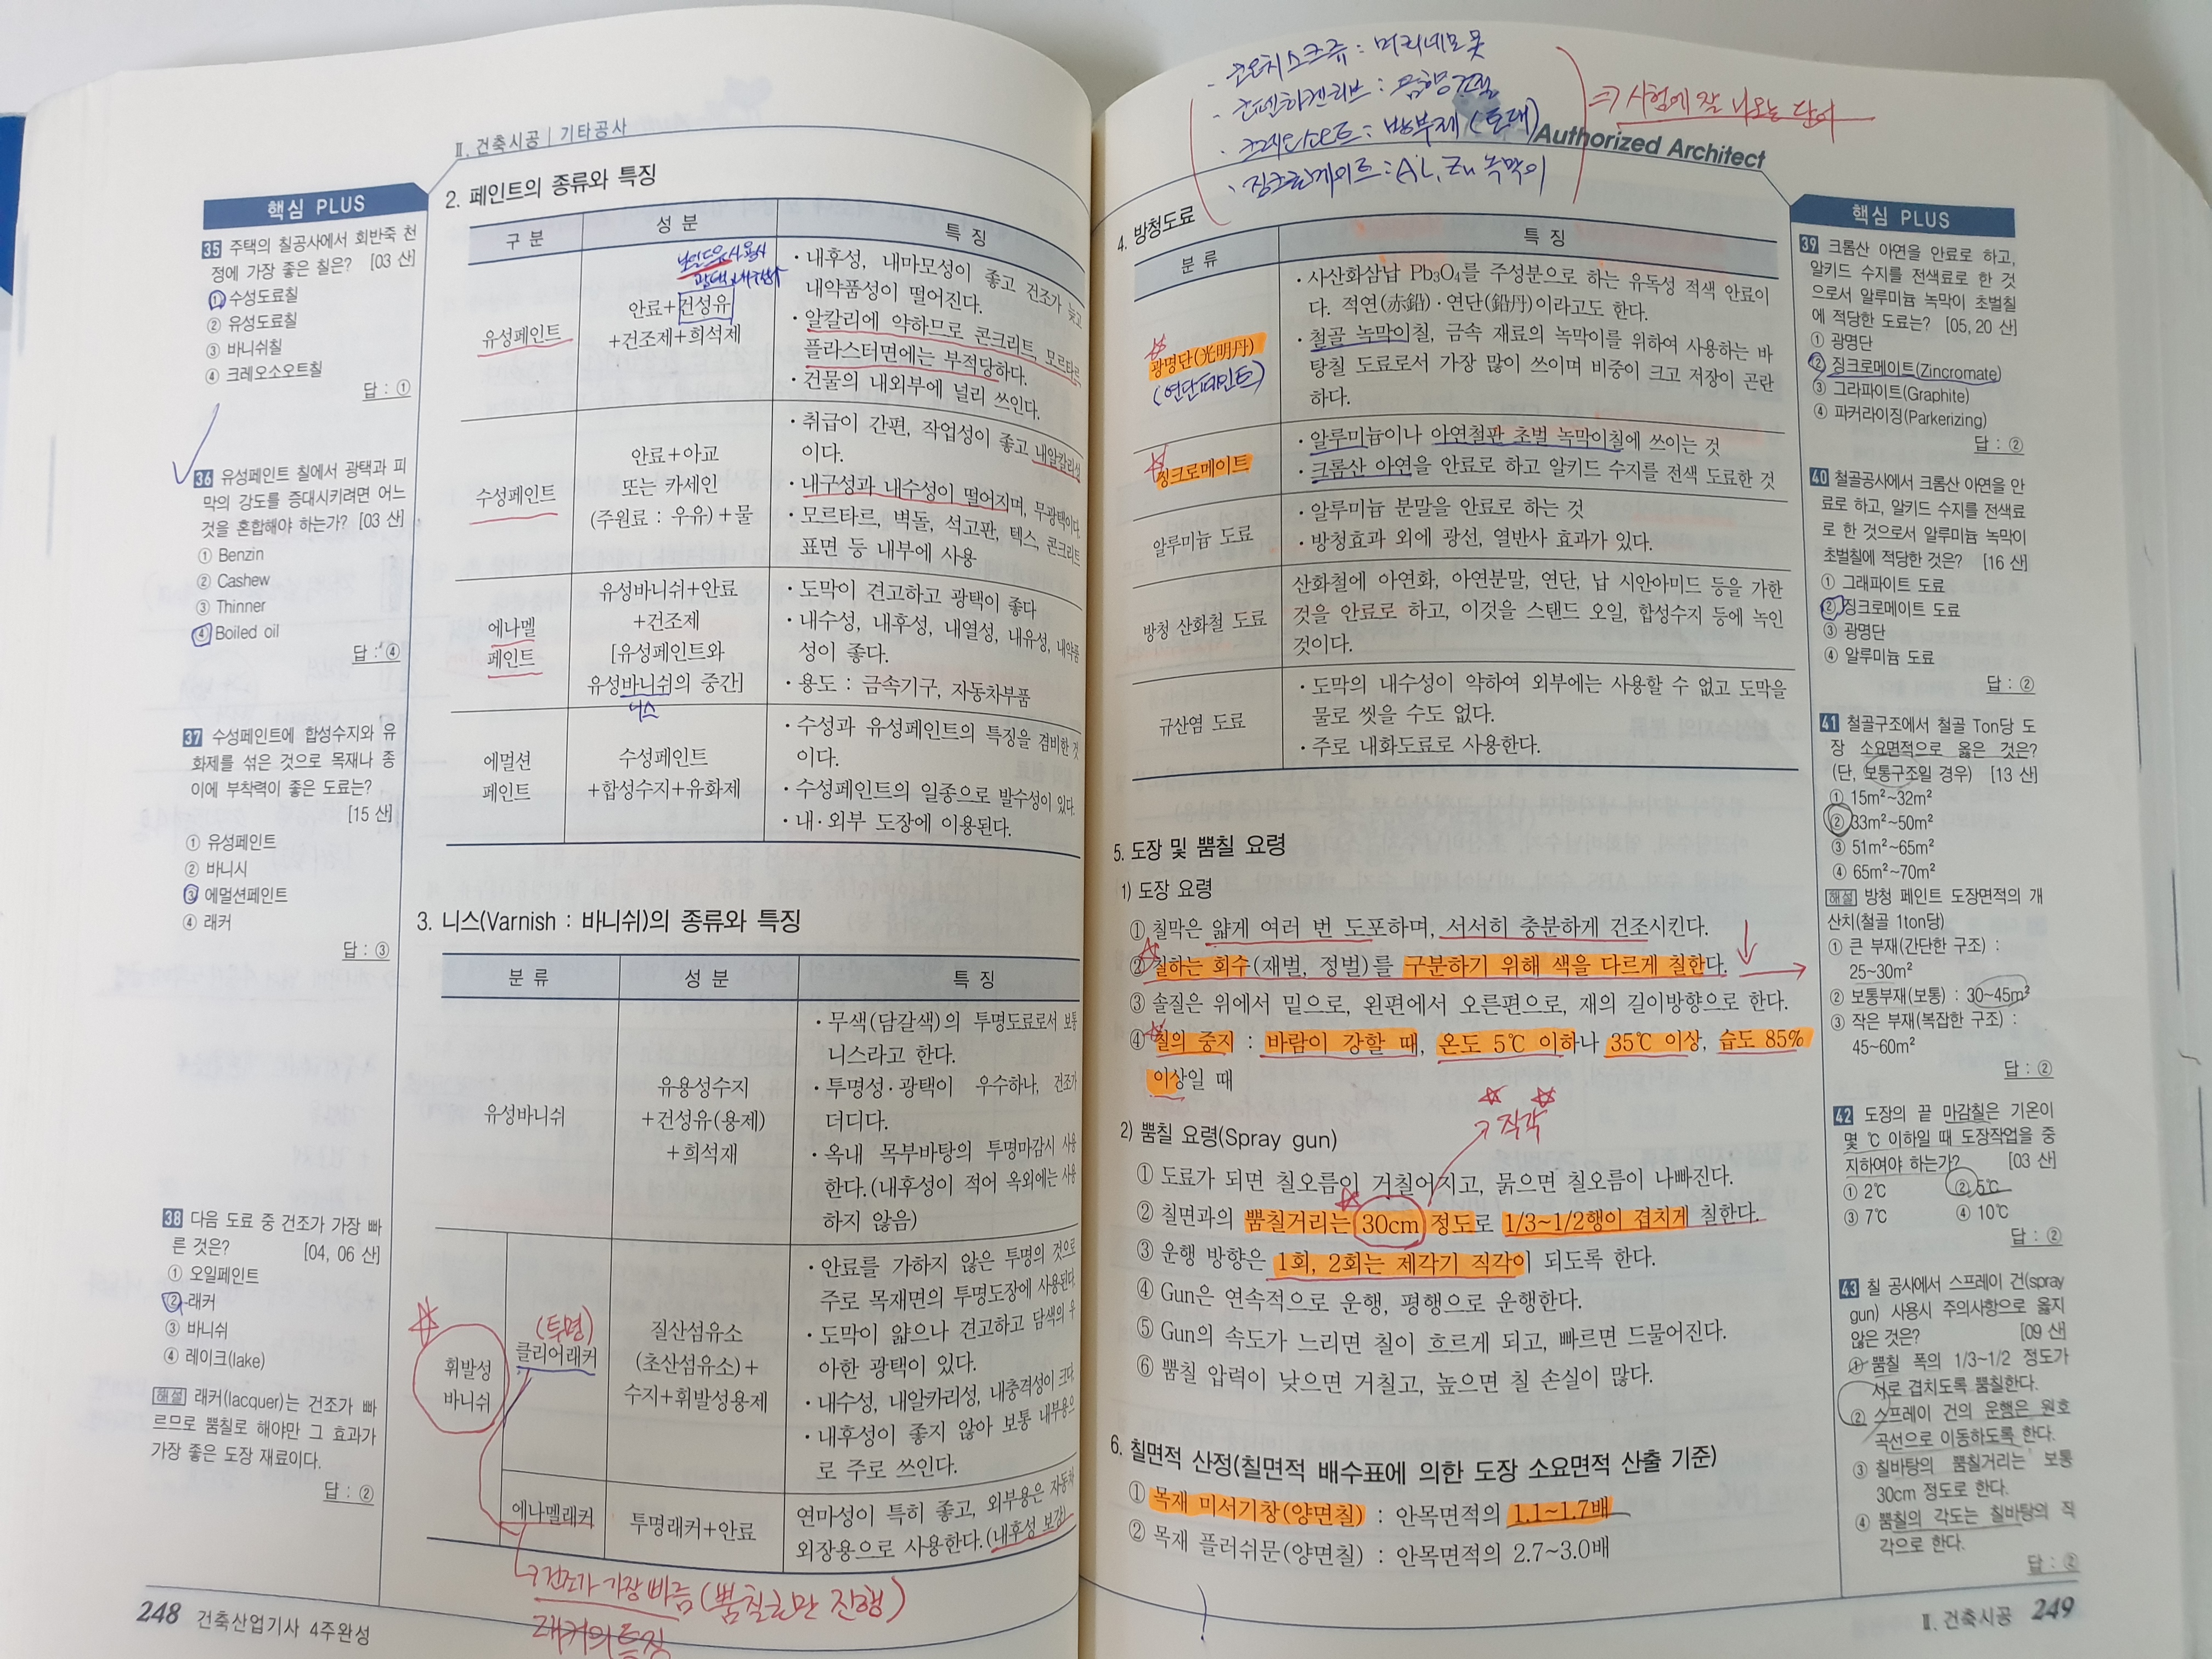 Ⅱ. 건축시공 | 기타공사
핵심 PLUS
35 주택의 칠공사에서 회반죽 천
정에 가장 좋은 칠은? [03 산]
① 수성도료칠
② 유성도료칠
③ 바니쉬칠
④ 크레오소오트칠
답 : ①
36 유성페인트 칠에서 광택과 피
막의 강도를 증대시키려면 어느
것을 혼합해야 하는가? [03 산]
① Benzin
② Cashew
③ Thinner
④ Boiled oil
답 : ④
37 수성페인트에 합성수지와 유
화제를 섞은 것으로 목재나 종
이에 부착력이 좋은 도료는?
[15 산]
① 유성페인트
② 바니시
③ 에멀션페인트
④ 래커
답 : ③
38 다음 도료 중 건조가 가장 빠
른 것은? [04, 06 산]
① 오일페인트
② 래커
③ 바니쉬
④ 레이크(lake)
해설 래커(lacquer)는 건조가 빠
르므로 뿜칠로 해야만 그 효과가
가장 좋은 도장 재료이다.
답 : ②
2. 페인트의 종류와 특징
구 분 성 분 특 징
유성페인트
안료+건성유
+건조제+희석제
· 내후성, 내마모성이 좋고 건조가 늦고
내약품성이 떨어진다.
· 알칼리에 약하므로 콘크리트, 모르타르,
플라스터면에는 부적당하다.
· 건물의 내외부에 널리 쓰인다.
수성페인트
안료+아교
또는 카세인
(주원료 : 우유)+물
· 취급이 간편, 작업성이 좋고 내알칼리성
이다.
· 내구성과 내수성이 떨어지며, 무광택이다.
· 모르타르, 벽돌, 석고판, 텍스, 콘크리트
표면 등 내부에 사용
에나멜
페인트
유성바니쉬+안료
+건조제
[유성페인트와
유성바니쉬의 중간]
니스
· 도막이 견고하고 광택이 좋다
· 내수성, 내후성, 내열성, 내유성, 내약품
성이 좋다.
· 용도 : 금속기구, 자동차부품
에멀션
페인트
수성페인트
+합성수지+유화제
· 수성과 유성페인트의 특징을 겸비한 것
이다.
· 수성페인트의 일종으로 발수성이 있다.
· 내·외부 도장에 이용된다.
3. 니스(Varnish : 바니쉬)의 종류와 특징
분 류 성 분 특 징
유성바니쉬
유용성수지
+건성유(용제)
+희석재
· 무색(담갈색)의 투명도료로서 보통
니스라고 한다.
· 투명성·광택이 우수하나, 건조가
더디다.
· 옥내 목부바탕의 투명마감시 사용
한다.(내후성이 적어 옥외에는 사용
하지 않음)
휘발성
바니쉬
(투명)
클리어래커
질산섬유소
(초산섬유소)+
수지+휘발성용제
· 안료를 가하지 않은 투명의 것으로
주로 목재면의 투명도장에 사용된다.
· 도막이 얇으나 견고하고 담색의 우
아한 광택이 있다.
· 내수성, 내알카리성, 내충격성이 크다.
· 내후성이 좋지 않아 보통 내부용으
로 주로 쓰인다.
에나멜래커
투명래커+안료
연마성이 특히 좋고, 외부용은 자동차
외장용으로 사용한다.(내후성 보강)
→ 건조가 가장 빠름 (뿜칠로만 진행)
래커의 특징
248 건축산업기사 4주완성
· 코치스크류 : 머리네모 못
· 크레오소트 : 방부제 (토대)
· 징크로메이트 : Al, Zn 녹막이
⇒ 시험에 잘 나오는 단어
Authorized Architect
4. 방청도료
분 류 특 징
광명단(光明丹)
(연단페인트)
· 사산화삼납 Pb₃O₄를 주성분으로 하는 유독성 적색 안료이
다. 적연(赤鉛)·연단(鉛丹)이라고도 한다.
· 철골 녹막이칠, 금속 재료의 녹막이를 위하여 사용하는 바
탕칠 도료로서 가장 많이 쓰이며 비중이 크고 저장이 곤란
하다.
징크로메이트
· 알루미늄이나 아연철판 초벌 녹막이칠에 쓰이는 것
· 크롬산 아연을 안료로 하고 알키드 수지를 전색 도료한 것
알루미늄 도료
· 알루미늄 분말을 안료로 하는 것
· 방청효과 외에 광선, 열반사 효과가 있다.
방청 산화철 도료
산화철에 아연화, 아연분말, 연단, 납 시안아미드 등을 가한
것을 안료로 하고, 이것을 스탠드 오일, 합성수지 등에 녹인
것이다.
규산염 도료
· 도막의 내수성이 약하여 외부에는 사용할 수 없고 도막을
물로 씻을 수도 없다.
· 주로 내화도료로 사용한다.
5. 도장 및 뿜칠 요령
1) 도장 요령
① 칠막은 얇게 여러 번 도포하며, 서서히 충분하게 건조시킨다.
② 칠하는 회수(재벌, 정벌)를 구분하기 위해 색을 다르게 칠한다.
③ 솔질은 위에서 밑으로, 왼편에서 오른편으로, 재의 길이방향으로 한다.
④ 칠의 중지 : 바람이 강할 때, 온도 5℃ 이하나 35℃ 이상, 습도 85%
이상일 때
직각
2) 뿜칠 요령(Spray gun)
① 도료가 되면 칠오름이 거칠어지고, 묽으면 칠오름이 나빠진다.
② 칠면과의 뿜칠거리는 30cm 정도로 1/3~1/2행이 겹치게 칠한다.
③ 운행 방향은 1회, 2회는 제각기 직각이 되도록 한다.
④ Gun은 연속적으로 운행, 평행으로 운행한다.
⑤ Gun의 속도가 느리면 칠이 흐르게 되고, 빠르면 드물어진다.
⑥ 뿜칠 압력이 낮으면 거칠고, 높으면 칠 손실이 많다.
6. 칠면적 산정(칠면적 배수표에 의한 도장 소요면적 산출 기준)
① 목재 미서기창(양면칠) : 안목면적의 1.1~1.7배
② 목재 플러쉬문(양면칠) : 안목면적의 2.7~3.0배
핵심 PLUS
39 크롬산 아연을 안료로 하고,
알키드 수지를 전색료로 한 것
으로서 알루미늄 녹막이 초벌칠
에 적당한 도료는? [05, 20 산]
① 광명단
② 징크로메이트(Zincromate)
③ 그라파이트(Graphite)
④ 파커라이징(Parkerizing)
답 : ②
40 철골공사에서 크롬산 아연을 안
료로 하고, 알키드 수지를 전색료
로 한 것으로서 알루미늄 녹막이
초벌칠에 적당한 것은? [16 산]
① 그래파이트 도료
② 징크로메이트 도료
③ 광명단
④ 알루미늄 도료
답 : ②
41 철골구조에서 철골 Ton당 도
장 소요면적으로 옳은 것은?
(단, 보통구조일 경우) [13 산]
① 15m²~32m²
② 33m²~50m²
③ 51m²~65m²
④ 65m²~70m²
해설 방청 페인트 도장면적의 개
산치(철골 1ton당)
① 큰 부재(간단한 구조) :
25~30m²
② 보통부재(보통) : 30~45m²
③ 작은 부재(복잡한 구조) :
45~60m²
답 : ②
42 도장의 끝 마감칠은 기온이
몇 ℃ 이하일 때 도장작업을 중
지하여야 하는가? [03 산]
① 2℃ ② 5℃
③ 7℃ ④ 10℃
답 : ②
43 칠 공사에서 스프레이 건(spray
gun) 사용시 주의사항으로 옳지
않은 것은? [09 산]
① 뿜칠 폭의 1/3~1/2 정도가
서로 겹치도록 뿜칠한다.
② 스프레이 건의 운행은 원호
곡선으로 이동하도록 한다.
③ 칠바탕의 뿜칠거리는 보통
30cm 정도로 한다.
④ 뿜칠의 각도는 칠바탕의 직
각으로 한다.
답 : ②
Ⅱ. 건축시공 249